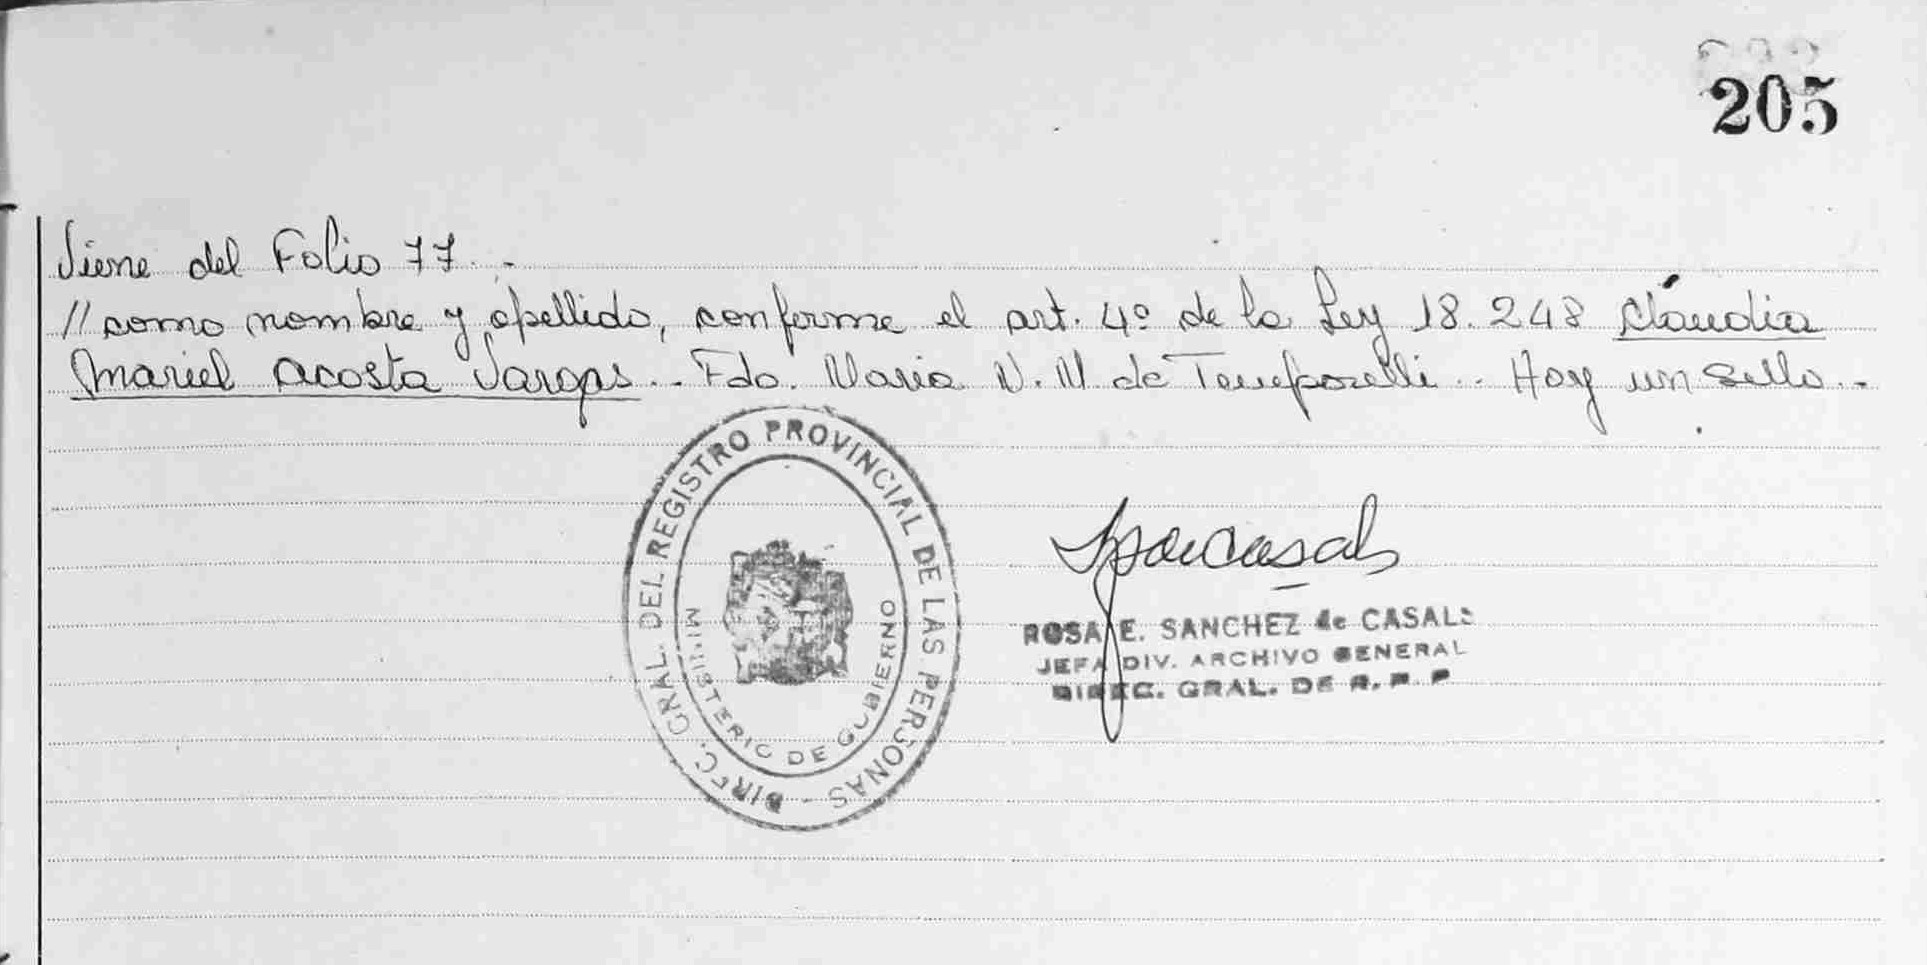 205
Viene del Folio 77.-
// como nombre y apellido, conforme el art. 4º de la Ley 18.248 Cláudia
Mariel Acosta Vargas.. Fdo. Maria N. M. de Temporelli.. Hay un sello.-
DIREC. GRAL. DEL REGISTRO PROVINCIAL DE LAS PERSONAS -
MINISTERIO DE GOBIERNO
ROSA E. SANCHEZ de CASALS
JEFA DIV. ARCHIVO GENERAL
DIREC. GRAL. DE R. P. P